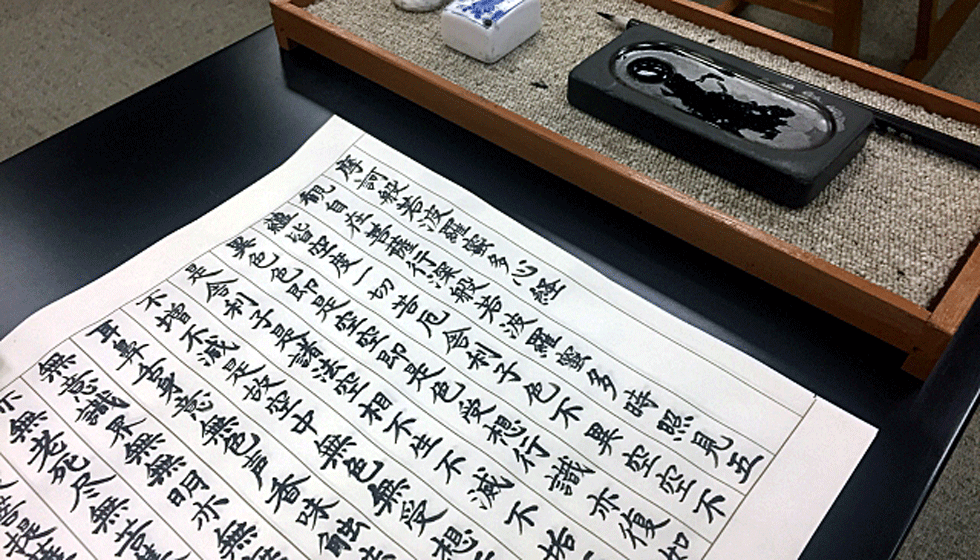 摩訶般若波羅蜜多心経
観自在菩薩行深般若波羅蜜多時照見五
蘊皆空度一切苦厄舎利子色不異空空不
異色色即是空空即是色受想行識亦復如
是舎利子是諸法空相不生不滅不垢
不増不減是故空中無色無受想
耳鼻舌身意無色声香味触法
無意識界無無明亦無
亦無老死尽無苦
菩提薩